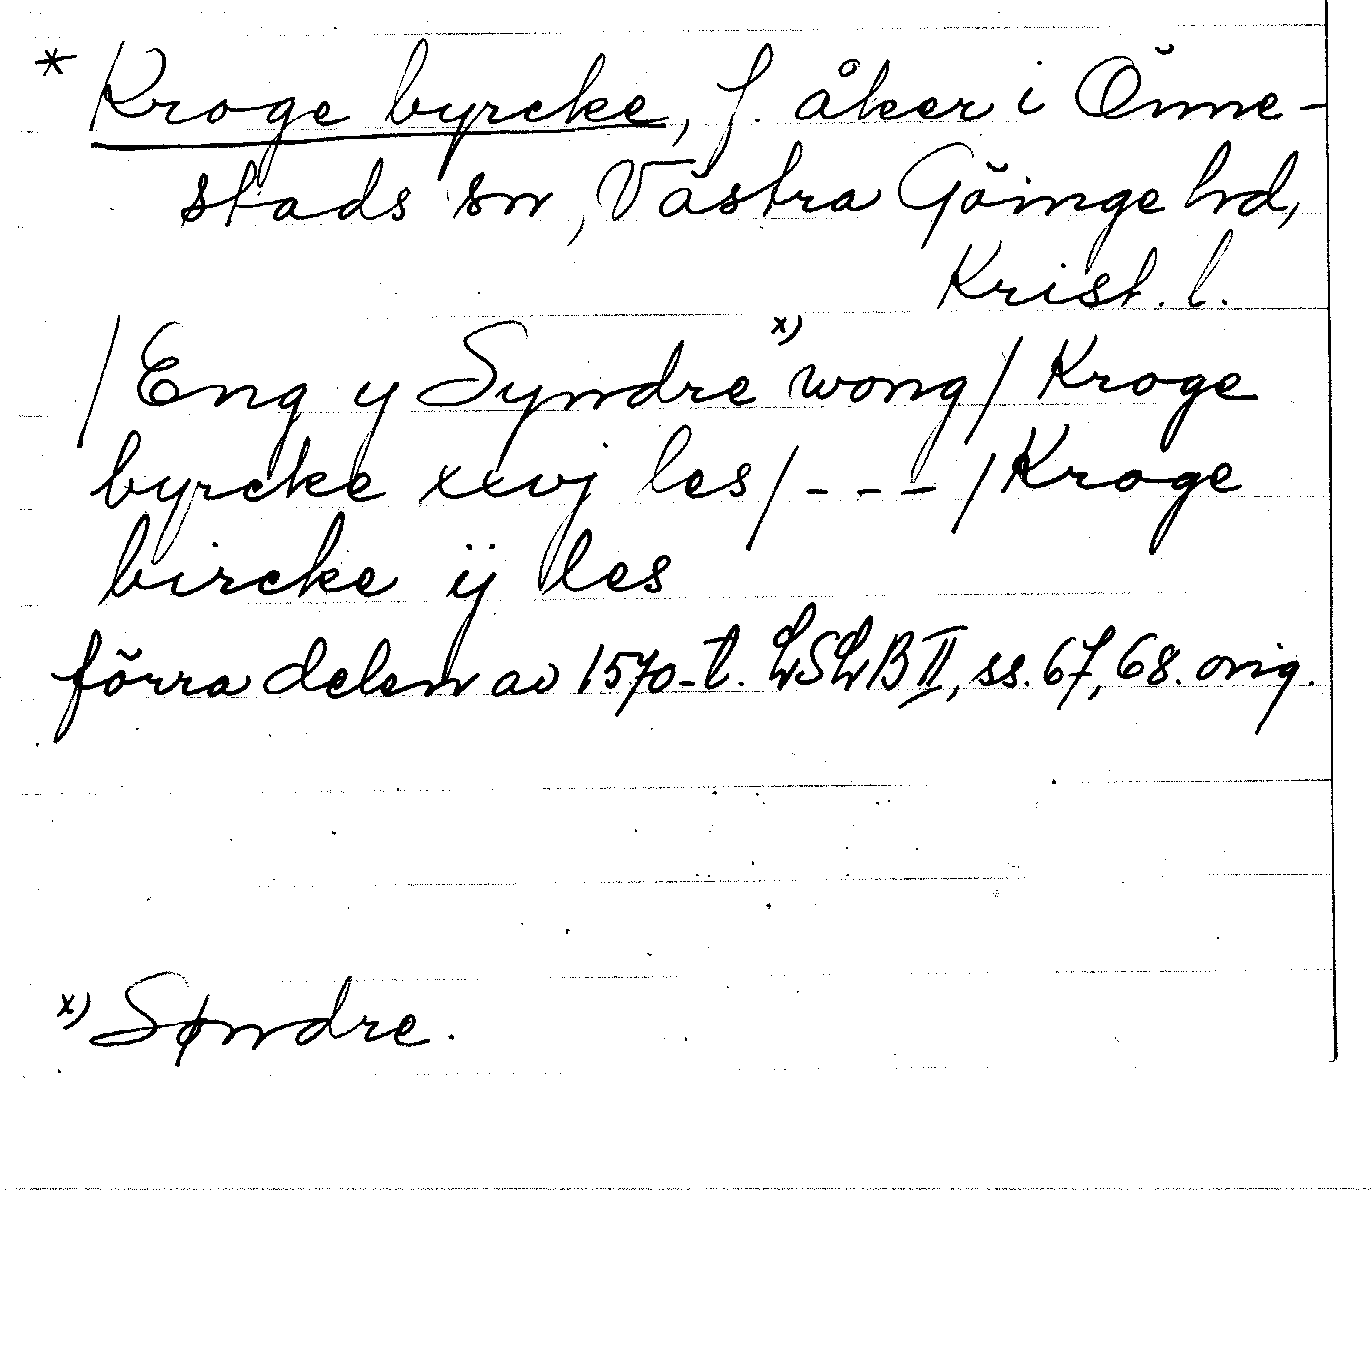 * Kroge byrcke, f. åker i Önne-
stads sn, Västra Göinge hd,
Krist. l.
/Eng y Syndre x) wong/ Kroge
byrcke xxvj les/ - - - /Kroge
bircke ij les
förra delen av 1570-t. LSLB II, ss. 67, 68. orig.
x) Søndre.